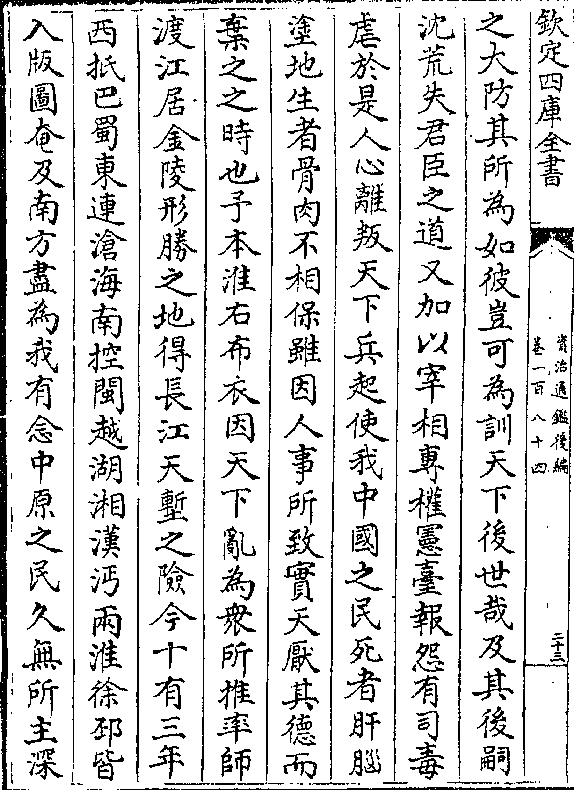 欽定四庫全書
資治通鑑後編
卷一百八十四
二十三
之大防其所為如彼豈可為訓天下後世哉及其後嗣
沈荒失君臣之道又加以宰相專權憲臺報怨有司毒
虐於是人心離叛天下兵起使我中國之民死者肝腦
塗地生者骨肉不相保雖因人事所致實天厭其德而
棄之之時也予本淮右布衣因天下亂為衆所推率師
渡江居金陵形勝之地得長江天塹之險今十有三年
西抵巴蜀東連滄海南控閩越湖湘漢沔兩淮徐邳皆
入版圖奄及南方盡為我有念中原之民久無所主深